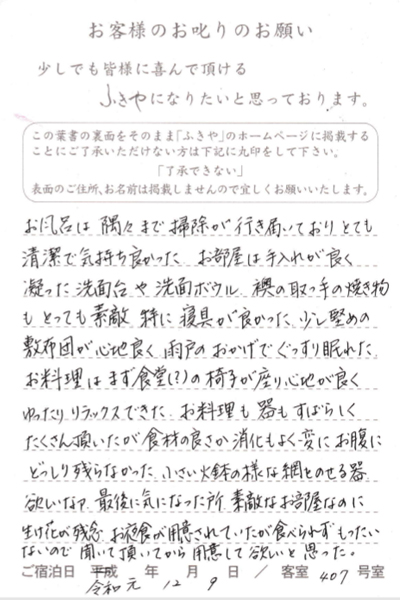 お客様のお叱りのお願い
少しでも皆様に喜んで頂ける
ふきやになりたいと思っております。
この葉書の裏面をそのまま「ふきや」のホームページに掲載する
ことにご了承いただけない方は下記に丸印をして下さい。
「了承できない」
表面のご住所、お名前は掲載しませんので宜しくお願いいたします。
お風呂は 隅々まで掃除が行き届いており とても
清潔で気持ち良かった お部屋は手入れが良く
凝った洗面台や洗面ボウル 襖の取っ手の焼き物
も とっても素敵 特に寝具が良かった 少し堅めの
敷布団が心地良く 雨戸のおかげでぐっすり眠れた
お料理はまず食堂(?)の椅子が座り心地が良く
ゆったりリラックスできた お料理も器もすばらしく
たくさん頂いたが食材の良さか消化もよく変にお腹に
どっしり残らなかった 小さい火鉢の様な網をのせる器
欲しいなァ 最後に気になった所 素敵なお部屋なのに
生け花が残念 お夜食が用意されていたが食べられず もったい
ないので 聞いて頂いてから用意して欲しいと思った。
ご宿泊日 平成 年 月 日 / 客室 407 号室
令和 元 12 9